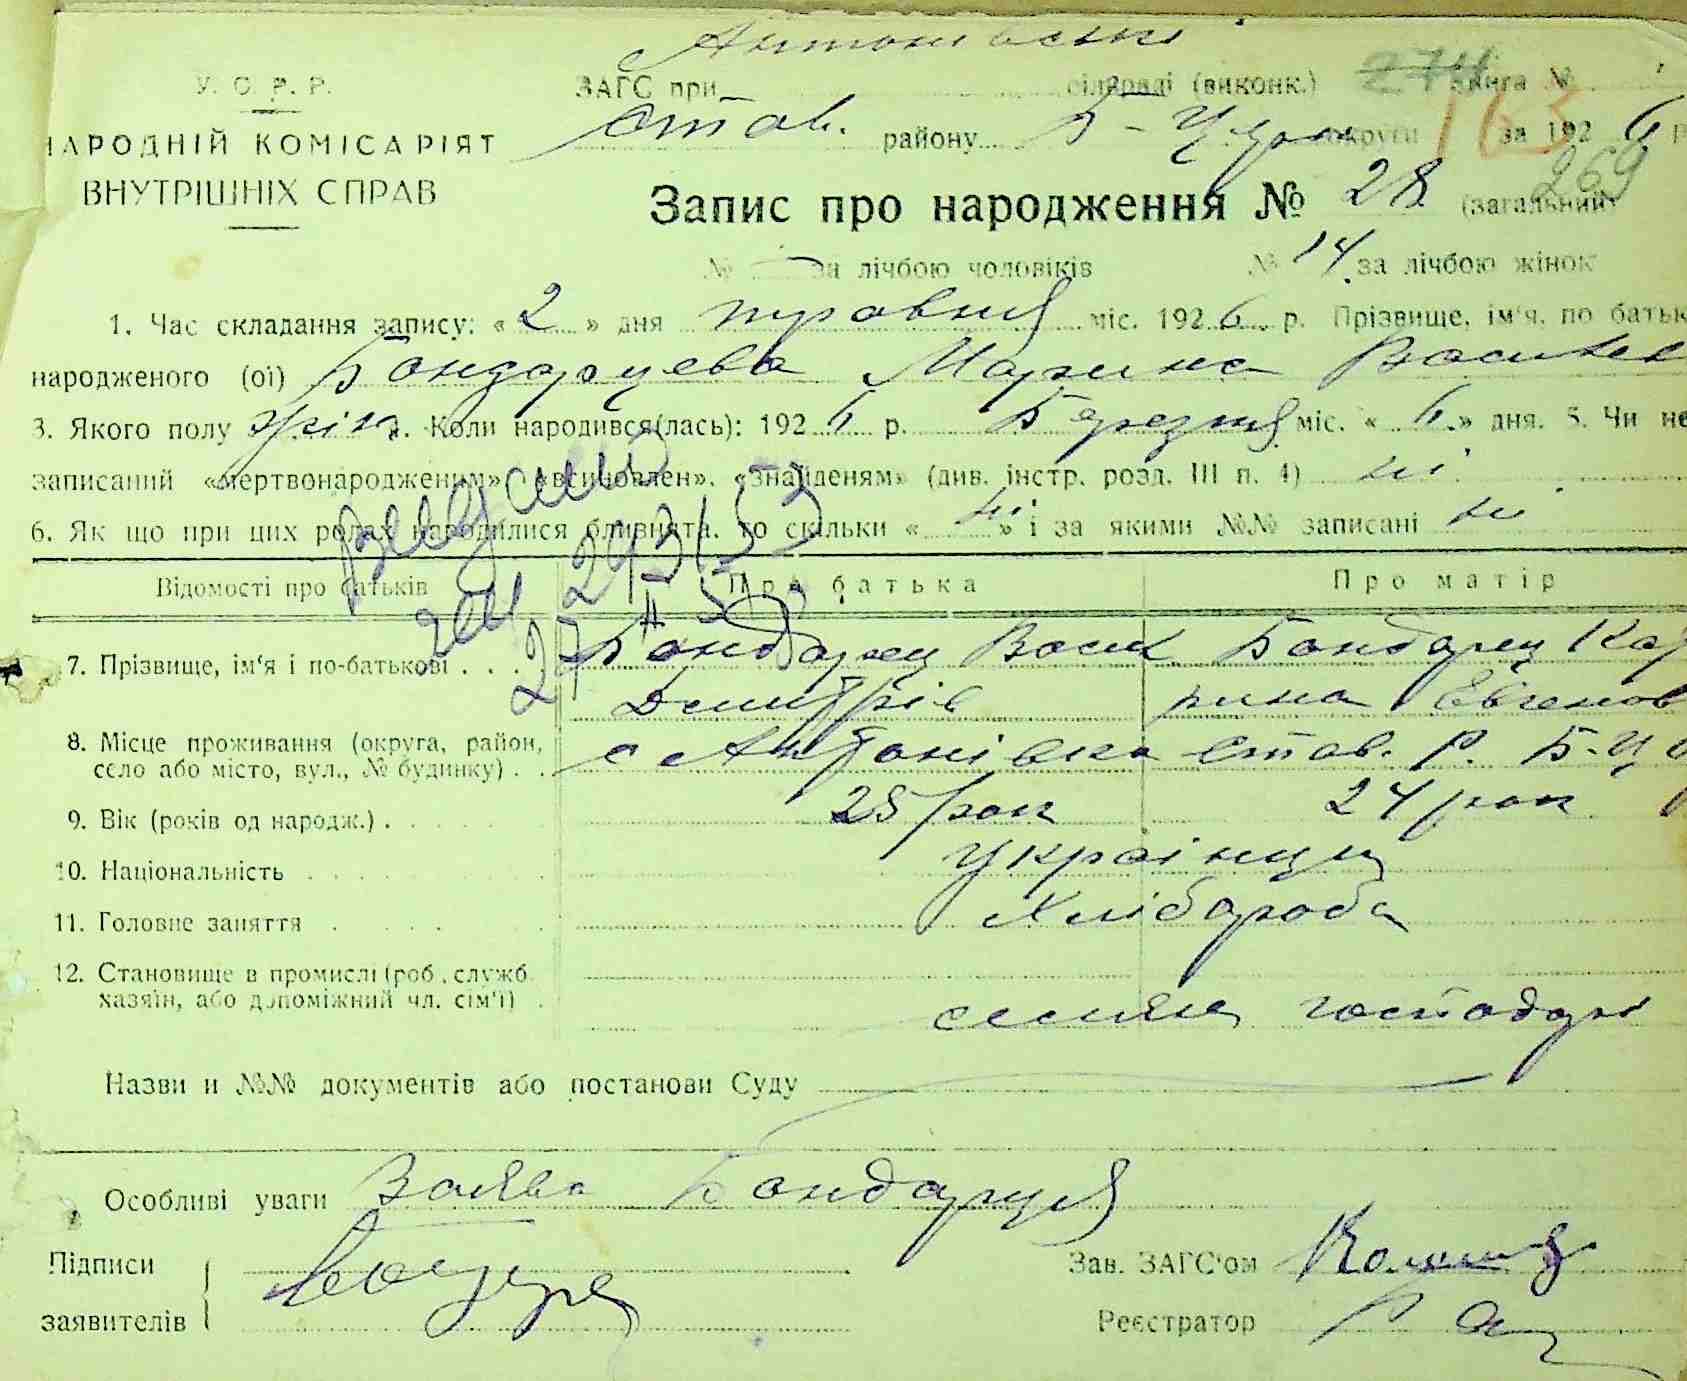 Антонівські
У. С. Р. Р.
ЗАГС при сільраді (виконк.) 274 Книга №
Став. району Б-Церк округи 163 за 1926 р
НАРОДНІЙ КОМІСАРІЯТ
ВНУТРІШНІХ СПРАВ
Запис про народження № 28 (загальний) 269
№ — за лічбою чоловіків № 14 за лічбою жінок
1. Час складання запису: « 2 » дня травня міс. 1926 р. Прізвище, ім'я, по батьк
народженого (ої) Бондарцева Марина Василев
3. Якого полу жін 4. Коли народився(лась): 1926 р. Березня міс. « 6 » дня. 5. Чи не
записаний «мертвонародженим», «всиновлен», «знайденям» (див. інстр. розд. III п. 4) ні
6. Як що при цих родах народилися близнята, то скільки « ні » і за якими №№ записані ні
Відомості про батьків Про батька Про матір
7. Прізвище, ім'я і по-батькові . . . Бондарец Васил Бондарец Кат
Дмитрів рина Евгенов
8. Місце проживання (округа, район, с Антонівка Став. Р. Б-Ц
село або місто, вул., № будинку) . .
9. Вік (років од народж.) . 25 рок 24 рок
10. Національність українци
11. Головне заняття Хлібароба
12. Становище в промислі (роб., служб.
хазяїн, або допоміжний чл. сім'ї) . господарі
Назви и №№ документів або постанови Суду
Особливі уваги Заява Бондарця
Підписи
заявителів
Зав. ЗАГС'ом
Реєстратор